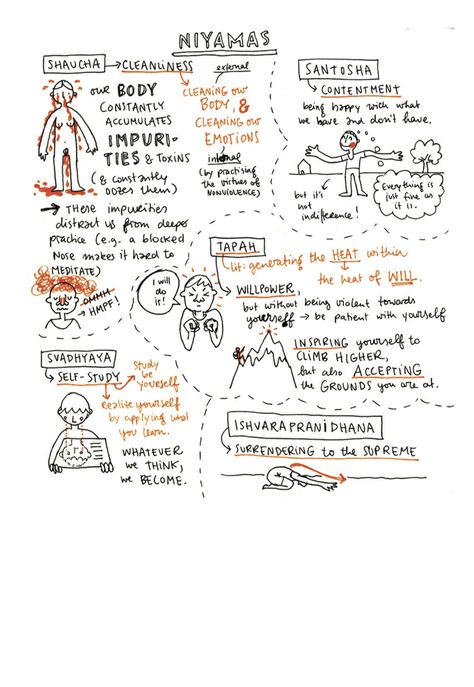 NIYAMAS
SHAUCHA → CLEANLINESS
external
CLEANING OUR
BODY, &
CLEANING OUR
EMOTIONS
internal
(by practising
the virtues of
NONVIOLENCE)
OUR BODY
CONSTANTLY
ACCUMULATES
IMPURI-
TIES & TOXINS
(& CONSTANTLY
OOZES THEM)
→ THESE IMPURITIES
DISTRACT US FROM DEEPER
PRACTICE (e.g. a BLOCKED
NOSE MAKES IT HARD TO
MEDITATE)
OHMM
→ HMPF!
SANTOSHA
CONTENTMENT
being happy with what
we have and don't have.
but it's
not
indifference!
Everything is
just fine as
it is.
TAPAH
lit: generating the HEAT within
the heat of WILL.
I will
do it!
WILLPOWER,
but without being violent towards
yourself → be patient with yourself
INSPIRING yourself to
CLIMB HIGHER,
but also ACCEPTING
the GROUNDS you are at.
SVADHYAYA
SELF-STUDY
Study
the
yourself
Realise yourself
by applying what
you learn.
WHATEVER
WE THINK,
WE BECOME.
ISHVARAPRANIDHANA
SURRENDERING to the SUPREME